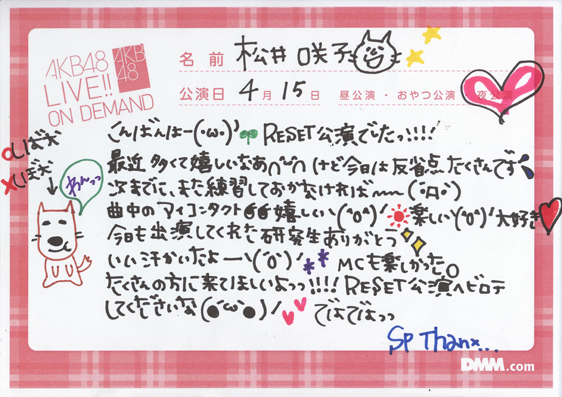 AKB48
LIVE!!
ON DEMAND
AKB
48
名前 松井咲子
公演日 4月15日 昼公演・おやつ公演・夜公演
こんばんはー(・ω・)ノ RESET公演でしたっ!!!!
最近多くて嬉しいなあ けど今日は反省点たくさんです
次までに、また練習しておかなければ
曲中のアイコンタクト嬉しい\(^o^)/ 楽しい\(^o^)/ 大好き
今日も出演してくれた研究生ありがとう
いい汗かいたよー\(^o^)/ MCも楽しかった。
たくさんの方に来てほしいよっ!!!! RESET公演ヘビロテ
してくださいな(●'ω'●)ノ ではではっっ
しばた
しばた
わんっっ
Sp Thanx...
DMM.com